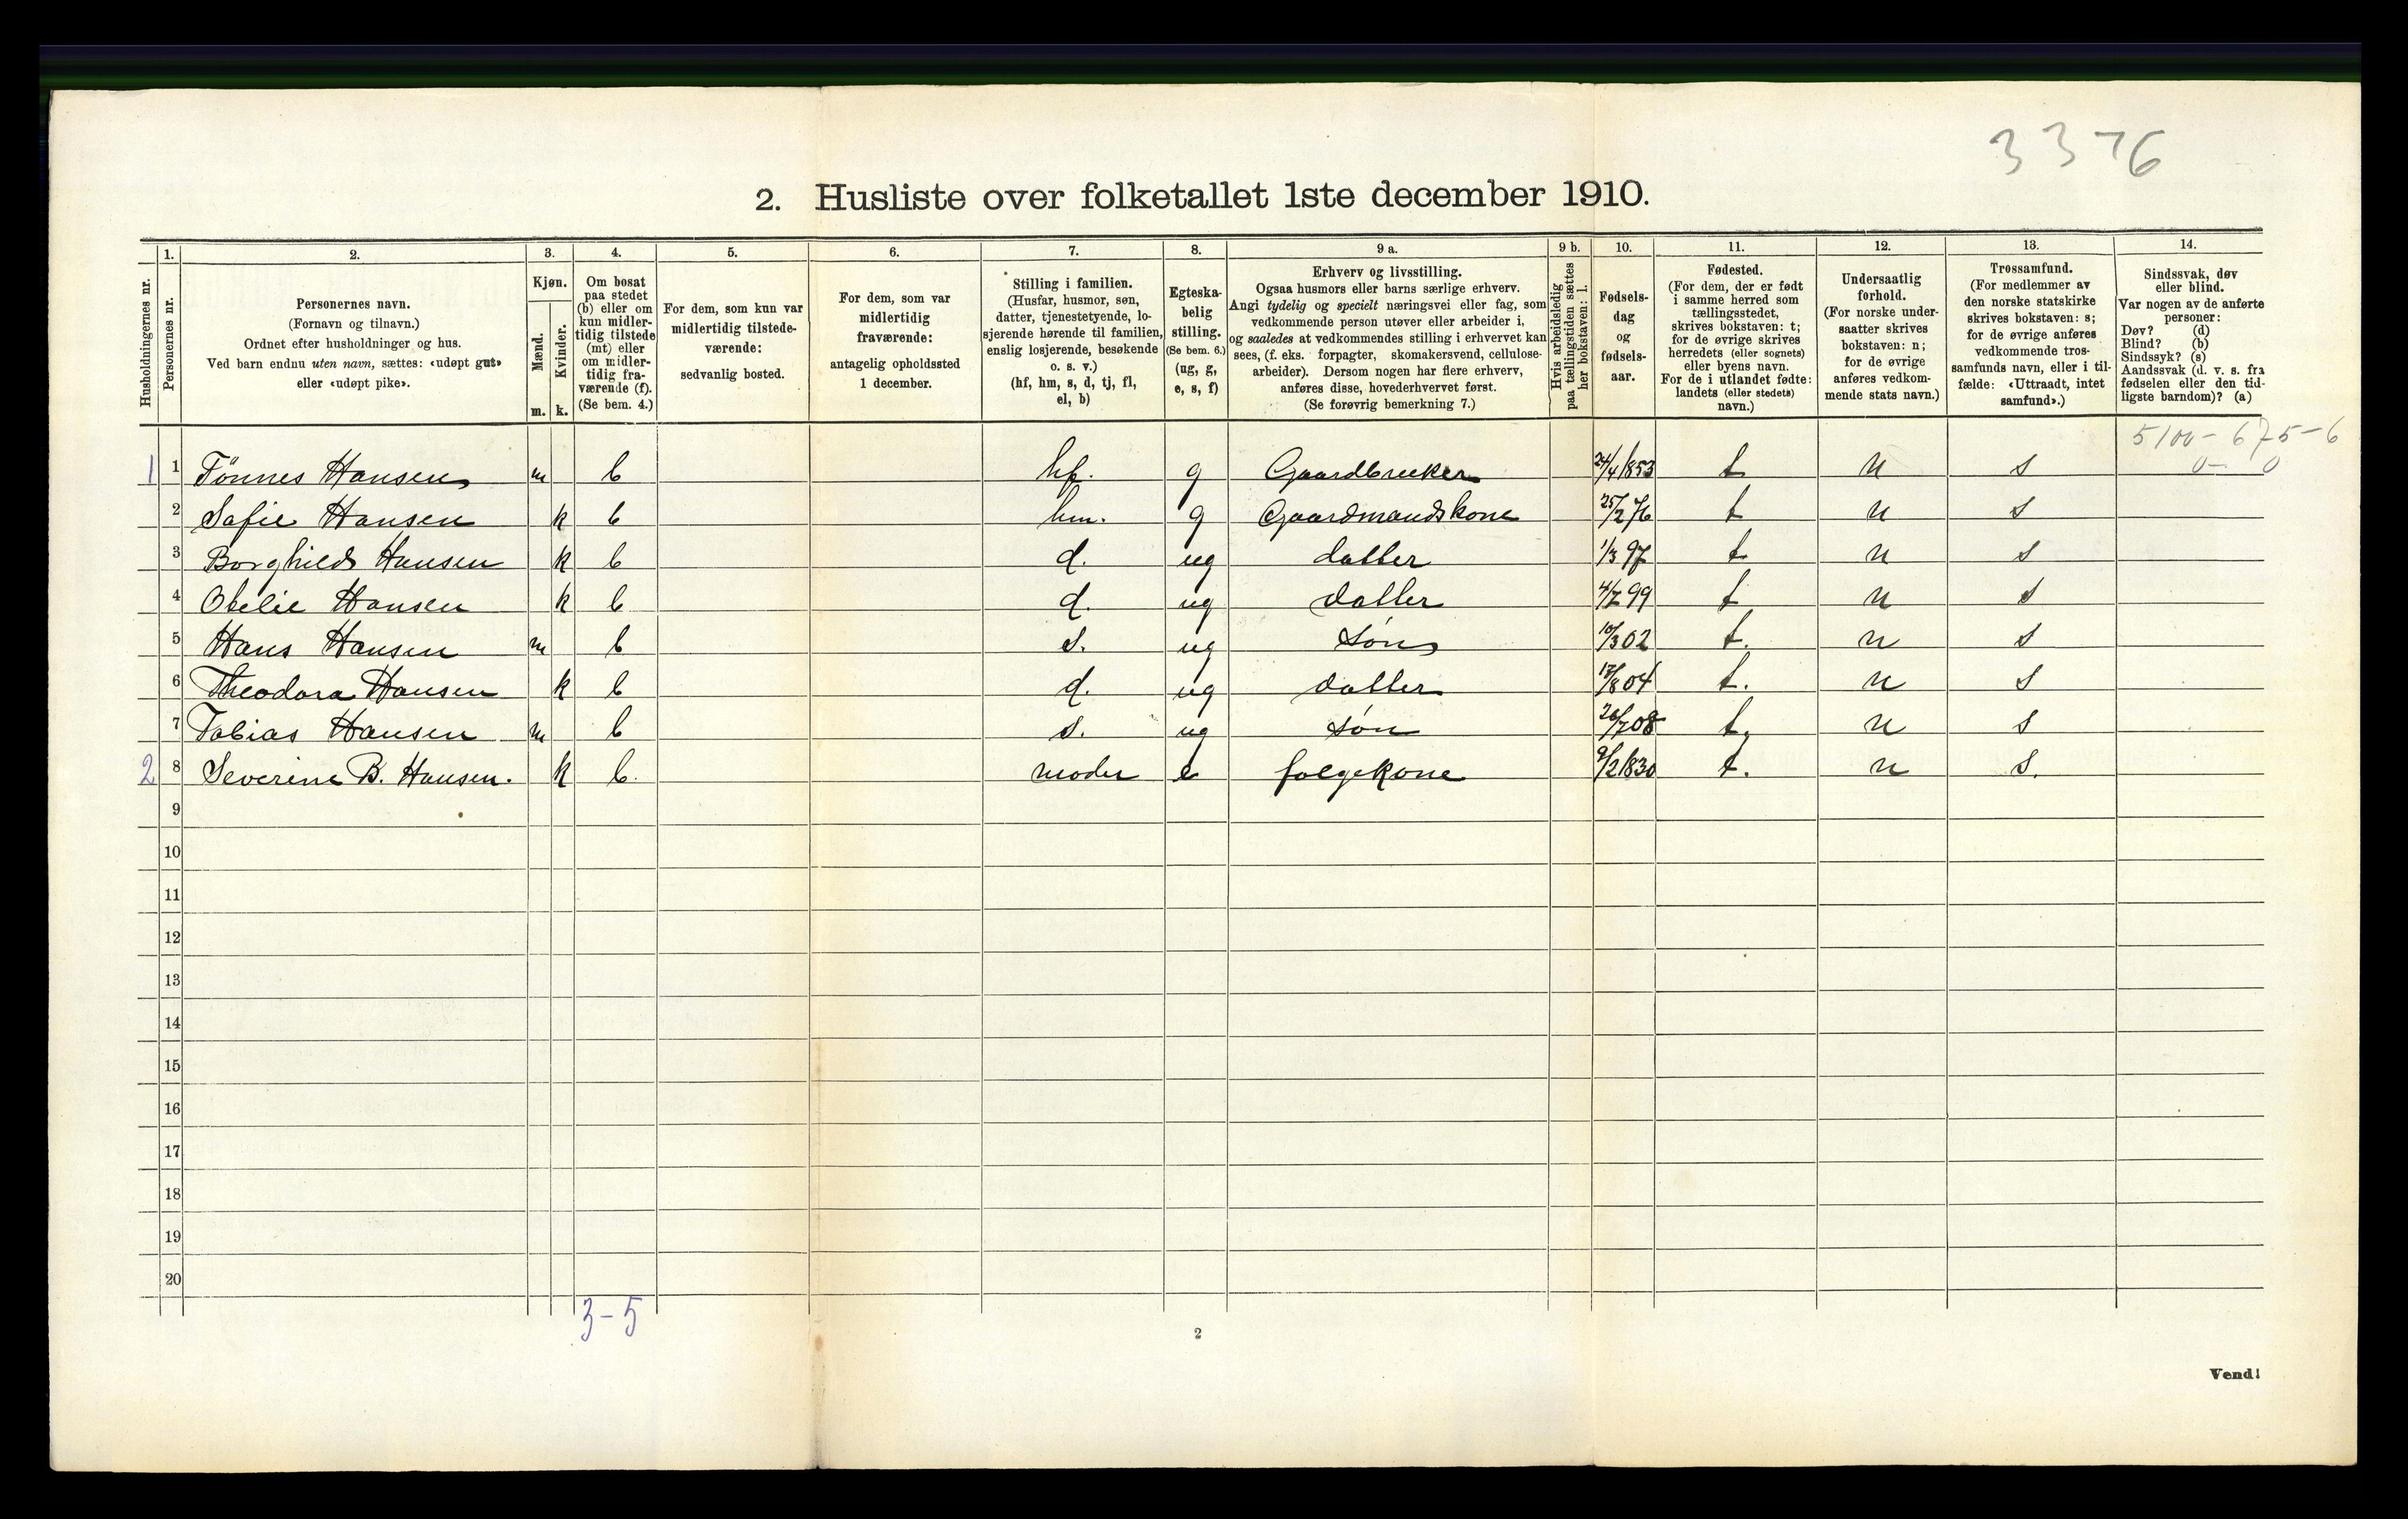 3376
2. Husliste over folketallet 1ste december 1910.
Husholdningernes nr.
1.
Personernes nr.
2.
Personernes navn.
(Fornavn og tilnavn.)
Ordnet efter husholdninger og hus.
Ved barn endnu uten navn, sættes: «udøpt gut»
eller «udøpt pike».
3.
Kjøn.
Mænd.
Kvinder.
m. k.
4.
Om bosat
paa stedet
(b) eller om
kun midler-
tidig tilstede
(mt) eller
om midler-
tidig fra-
værende (f).
(Se bem. 4.)
5.
For dem, som kun var
midlertidig tilstede-
værende:
sedvanlig bosted.
6.
For dem, som var
midlertidig
fraværende:
antagelig opholdssted
1 december.
7.
Stilling i familien.
(Husfar, husmor, søn,
datter, tjenestetyende, lo-
sjerende hørende til familien,
enslig losjerende, besøkende
o. s. v.)
(hf, hm, s, d, tj, fl,
el, b)
8.
Egteska-
belig
stilling.
(Se bem. 6.)
(ug, g,
e, s, f)
9 a.
Erhverv og livsstilling.
Ogsaa husmors eller barns særlige erhverv.
Angi tydelig og specielt næringsvei eller fag, som
vedkommende person utøver eller arbeider i,
og saaledes at vedkommendes stilling i erhvervet kan
sees, (f. eks. forpagter, skomakersvend, cellulose-
arbeider). Dersom nogen har flere erhverv,
anføres disse, hovederhvervet først.
(Se forøvrig bemerkning 7.)
9 b.
Hvis arbeidsledig
paa tællingstiden sættes
her bokstaven: l.
10.
Fødsels-
dag
og
fødsels-
aar.
11.
Fødested.
(For dem, der er født
i samme herred som
tællingsstedet,
skrives bokstaven: t;
for de øvrige skrives
herredets (eller sognets)
eller byens navn.
For de i utlandet fødte:
landets (eller stedets)
navn.)
12.
Undersaatlig
forhold.
(For norske under-
saatter skrives
bokstaven: n;
for de øvrige
anføres vedkom-
mende stats navn.)
13.
Trossamfund.
(For medlemmer av
den norske statskirke
skrives bokstaven: s;
for de øvrige anføres
vedkommende tros-
samfunds navn, eller i til-
fælde: «Uttraadt, intet
samfund».)
14.
Sindssvak, døv
eller blind.
Var nogen av de anførte
personer:
Døv? (d)
Blind? (b)
Sindssyk? (s)
Aandssvak (d. v. s. fra
fødselen eller den tid-
ligste barndom)? (a)
5100 - 675 - 6
0 - 0
1 1 Tönnes Hansen m b hf. g Gaardbruker 24/4 1853 t n s
2 Safie Hansen k b hm. g Gaardmandskone 25/2 76 t n s
3 Borghild Hansen k b d. ug datter 1/3 97 t n s
4 Otelie Hansen k b d. ug datter 4/7 99 t n s
5 Hans Hansen m b s. ug søn 10/3 02 t. n s
6 Theodora Hansen k b d. ug datter 17/8 04 t. n s
7 Tobias Hansen m b s. ug søn 26/7 08 t. n s
2 8 Severine B. Hansen. k b. moder e folgekone 9/2 1830 t. n s.
9
10
11
12
13
14
15
16
17
18
19
20
3-5
2
Vend!